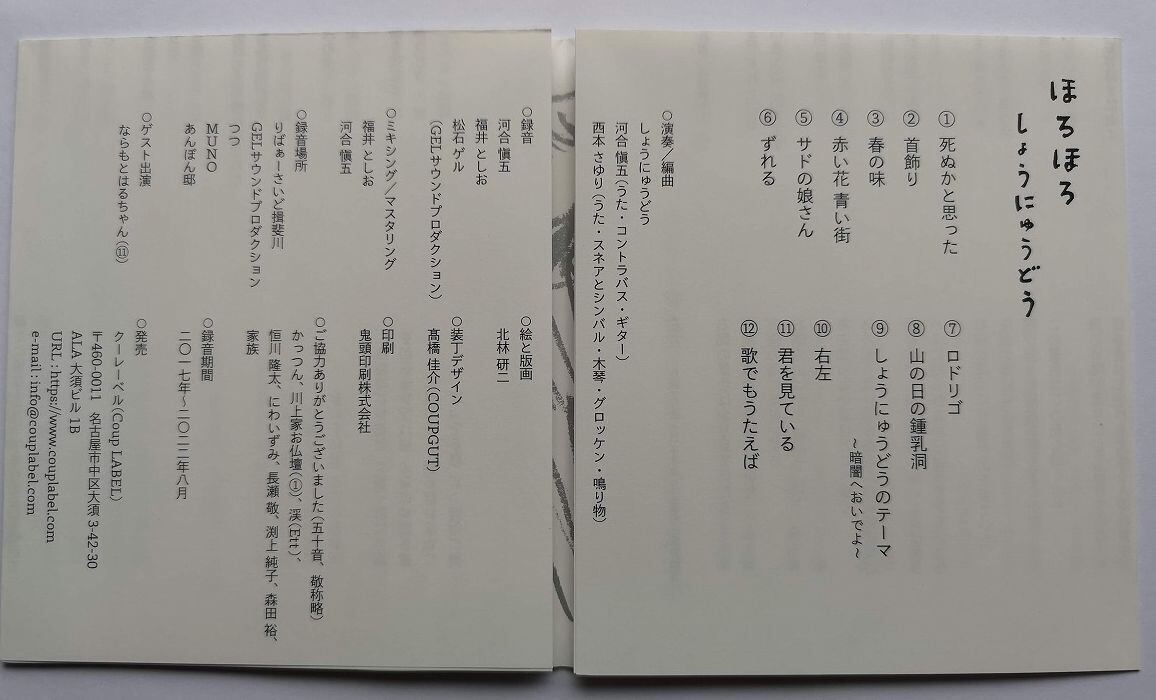 ほろほろ
しょうにゅうどう
① 死ぬかと思った
② 首飾り
③ 春の味
④ 赤い花 青い街
⑤ サドの娘さん
⑥ ずれる
⑦ ロドリゴ
⑧ 山の日の鍾乳洞
⑨ しょうにゅうどうのテーマ
~暗闇へおいでよ~
⑩ 右左
⑪ 君を見ている
⑫ 歌でもうたえば
○演奏/編曲
しょうにゅうどう
河合 愼五(うた・コントラバス・ギター)
西本 さゆり(うた・スネアとシンバル・木琴・グロッケン・鳴り物)
○録音
河合 愼五
福井 としお
松石 ゲル
(GELサウンドプロダクション)
○ミキシング/マスタリング
福井 としお
河合 愼五
○録音場所
りばぁーさいど揖斐川
GELサウンドプロダクション
つつ
MUNO
あんぽん邸
○ゲスト出演
ならもとはるちゃん(⑪)
○絵と版画
北林 研二
○装丁デザイン
髙橋 佳介(COUPGUT)
○印刷
鬼頭印刷株式会社
○ご協力ありがとうございました(五十音、敬称略)
かっつん、川上家お仏壇(①)、渓(Ett)、
恒川 隆太、にわいずみ、長瀬 敬、渕上 純子、森田 裕、
家族
○録音期間
二〇一七年~二〇二二年八月
○発売
クーレーベル(Coup LABEL)
〒460-0011 名古屋市中区大須 3-42-30
ALA 大須ビル 1B
URL : https://www.couplabel.com
e-mail : info@couplabel.com